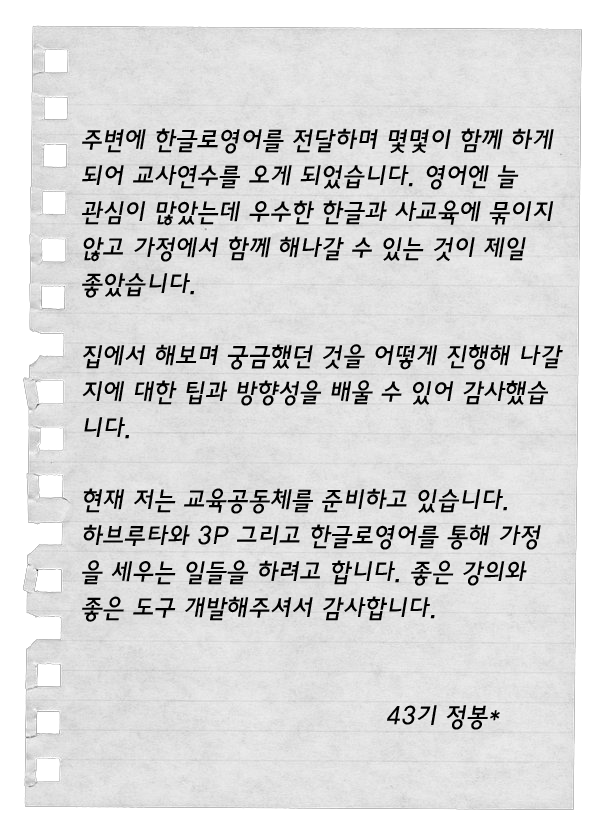 주변에 한글로영어를 전달하며 몇몇이 함께 하게
되어 교사연수를 오게 되었습니다. 영어엔 늘
관심이 많았는데 우수한 한글과 사교육에 묶이지
않고 가정에서 함께 해나갈 수 있는 것이 제일
좋았습니다.
집에서 해보며 궁금했던 것을 어떻게 진행해 나갈
지에 대한 팁과 방향성을 배울 수 있어 감사했습
니다.
현재 저는 교육공동체를 준비하고 있습니다.
하브루타와 3P 그리고 한글로영어를 통해 가정
을 세우는 일들을 하려고 합니다. 좋은 강의와
좋은 도구 개발해주셔서 감사합니다.
43기 정봉*